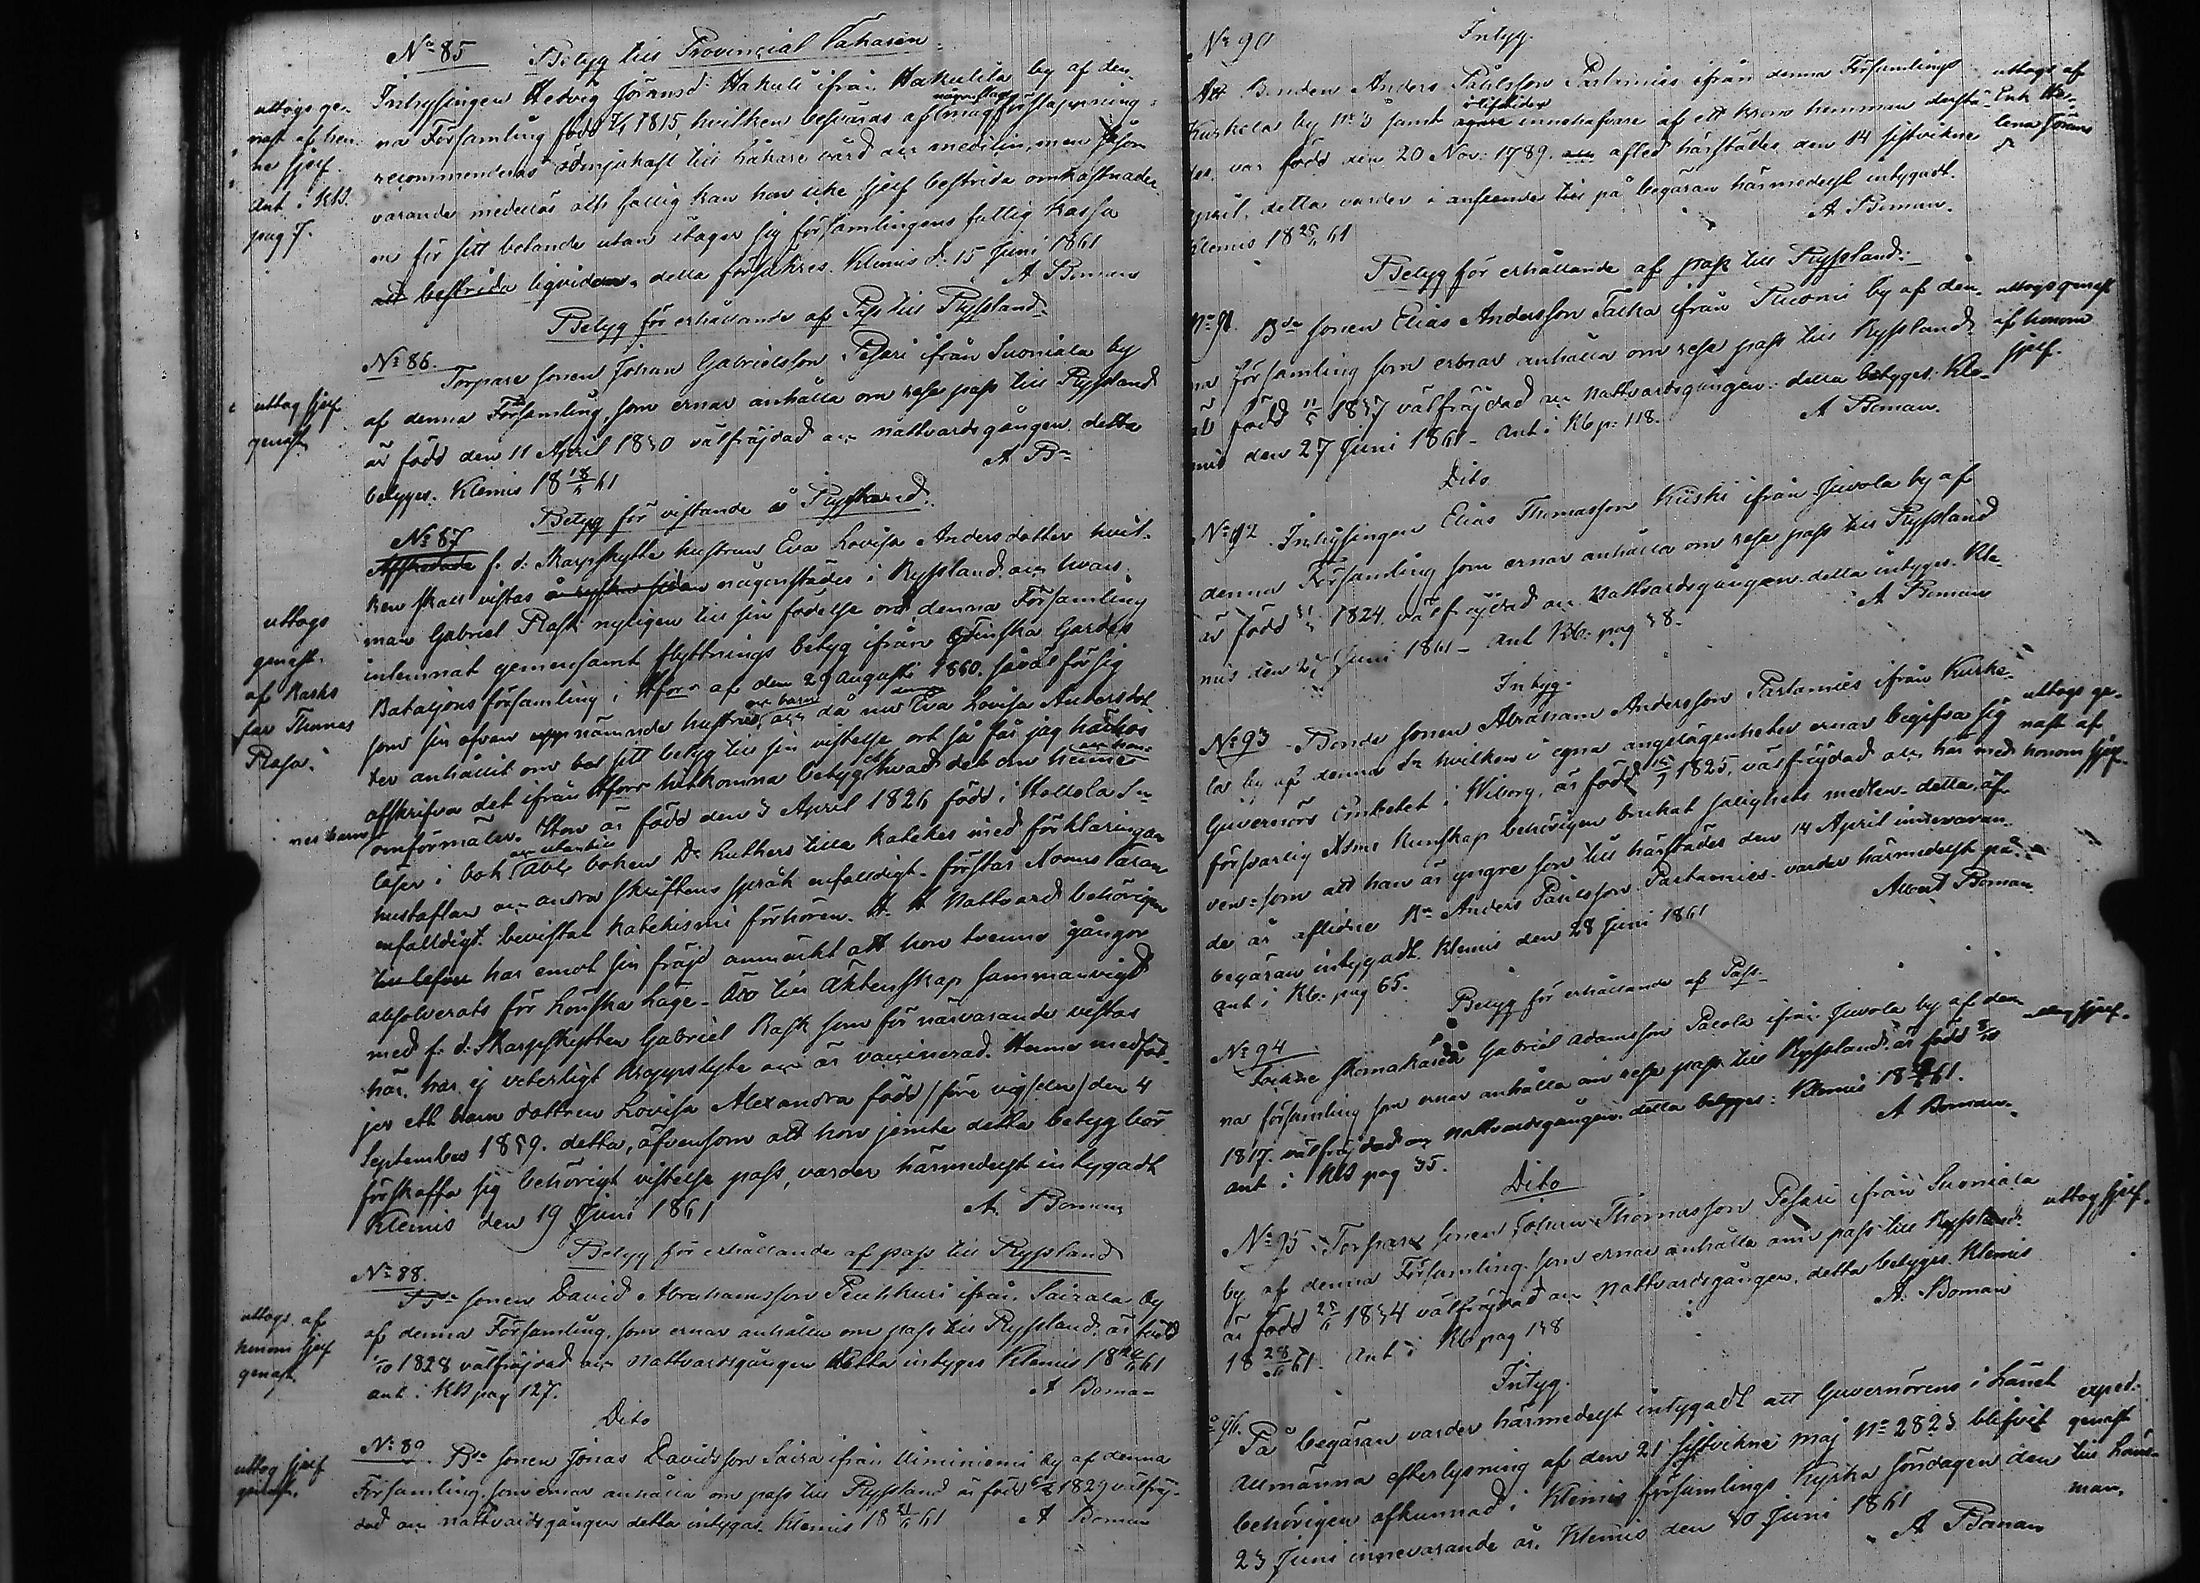 No 85 Betyg till Provincial Läkaren
Inhysingen Hedvig Göransd. Hakuli ifrån Hakulila by af den-
na Församling född 1815, hvilken besväras af
recommenderas ödmjukast till Läkare vård och medicin, men såsom
varande medellös och fattig kan hon icke sjelf bestrida omkostnader
na för sitt botande utan åtager sig församlingens fattig kassa
att bestrida liqviden, detta försäkras. Klemis d. 15 Juni 1861
A Boman
uttogs ge-
nast af hen-
ne sjelf.
Ant. i KB.
pag 7.
Betyg för erhållande af Pass till Ryssland.
No 86.
Torpare sonen Johan Gabrielsson Pesari ifrån Suoniala by
af denna Församling, som ernar anhålla om rese pass till Ryssland
är född den 11 April 1830 välfräjdad och nattvardsgången detta
betyges. Klemis 18 18/6 61
A Bn
uttog sjelf
genast
Betyg för vistande i Ryssland.
No 87
Afskedade f. d. Skarpskytte hustrun Eva Lovisa Andersdotter hvil-
ken skall vistas å någorstädes i Ryssland och hvars
man Gabriel Rask nyligen till sin födelse ort denna Församling
inlemnat gemensamt flyttnings betyg ifrån Finska Gardes
Bataljons församling i Hfors af den 29 Augusti 1860. såväl för sig
som sin ofvan nämnde hustru och barn och då nu Eva Lovisa Andersdot-
ter anhållit om sitt betyg till sin vistelse ort så får jag härhos
afskrifva det ifrån Hfors hitkomna betyget hvad det om henne och hen-
nes barn omförmäler. Hon är född den 3 April 1826 född i Hollola Sn
läser i bok och utantill Abc boken Dr Luthers lilla katekes med förklaringen
hustaflan och andra skriftens språk enfaldigt. förstår Normæ läran
enfalldigt. bevistat katekismi förhören. H. H. Nattvard behörigen
har emot sin fräjd anmärkt att hon trenne gångor
absolverats för Lönska Läge. Är till Äktenskap sammanvigd
med f. d. Skarpskytten Gabriel Rask som för närvarande vistas
här, har ej veterligt kroppslyte och är vaccinerad. Henne medföl-
jer ett barn dottren Lovisa Alexandra född /före vigseln/ den 4
September 1859. detta, äfvensom att hon jemte detta betyg bör
förskaffa sig behörigt vistelse pass, varder härmedelst intygadt
Klemis den 19 Juni 1861
A. Boman
uttogs
genast.
af Rasks
far Thomas
Rask.
Betyg för erhållande af pass till Ryssland
No 88.
Bde sonen David Abrahamsson Penkkuri ifrån Sairala by
af denna Församling, som ernar anhålla om pass till Ryssland är född
1828 välfräjdad och nattvardsgången detta intyges Klemis 18 61
ant i KB pag 127.
A Boman
uttogs af
honom sjelf
genast.
Dito
No 89. Bde sonen Jonas Davidsson Saira ifrån Uiminiemi by af denna
Församling som ernar anhålla om pass till Ryssland är född 1829 välfräj-
dad och nattvardsgången detta intygas. Klemis 18 21/6 61
A Boman
uttog sjelf
genast.
No 90 Intyg.
Att Bonden Anders Paulsson Partamies ifrån denna Församlings
Kuskela by No 3 samt innehafvare af ett krono hemman derstä-
des var född den 20 Nov. 1789. och afled härstädes den 14 sistvekne
april, detta varder i anseende på begäran härmedelst intygadt.
Klemis 18 25/6 61
A Boman.
uttogs af
Enk. He-
lena Görans
d.
Betyg för erhållande af pass till Ryssland.
No 91. Bde sonen Elias Andersson Talka ifrån by af den-
na församling som ernar anhålla om rese pass till Ryssland
är född 1837 välfräjdad och nattvardsgången: detta betyges. Kle-
mis den 27 Juni 1861 - ant i Kb p: 118.
A Boman.
uttogs genast
af honom
sjelf.
Dito
No 92. Inhysingen Elias Thomasson Kiiski ifrån Juvola by af
denna Församling som ernar anhålla om rese pass till Ryssland
är född 1824 välfräjdad och Nattvardsgången. detta intyges. Kle-
mis den 27 Juni 1861 - ant Kb: pag 38.
A Boman
Intyg.
No 93 Bonde sonen Abraham Andersson Partamies ifrån Kuske-
la by af denna Sn hvilken i egna angelägenheter ernar begifva sig
Guvernörs Embetet i Wiborg, är född 1825, välfräjdad och har med
försvarlig Xdms kunskap behörigen brukat salighets medlen. detta, äf-
ven- som att han är yngre son till härstädes den 14 April innevaran-
de år aflidne Bn Anders Paulsson Partamies. varder härmedelst på
begäran intygadt. Klemis den 28 Juni 1861
ant i Kb: pag 65.
Alb. Boman
uttogs ge-
nast af
honom sjelf.
Betyg för erhållande af Pass.
No 94
Socknes skomakaren Gabriel Adamsson Pacola ifrån Juvola by af den-
na församling som ernar anhålla om rese pass till Ryssland är född
1817. välfräjdad och Nattvardsgången. detta betyges: Klemis 18 61.
ant i KB pag 35.
A Boman.
uttog sjelf.
Dito
No 95 Torpare sonen Johan Thomasson Pesari ifrån Suoniala
by af denna Församling som ernar anhålla om pass till Ryssland.
är född 25 1834 välfräjdad och Nattvardsgången, detta betyges. Klemis
18 28/6 61. Ant i Kb pag 138
A. Boman
uttog sjelf.
Intyg.
No 96. På begäran varder härmedelst intygadt att Guvernörens i Länet
allmänna efterlysning af den 21 sistvekne maj No 2823 blifvit
behörigen afkunnad i Klemis församlings kyrka söndagen den
23 Juni innevarande år. Klemis den 30 Juni 1861
A Boman
exped.
genast
till Läns-
man.